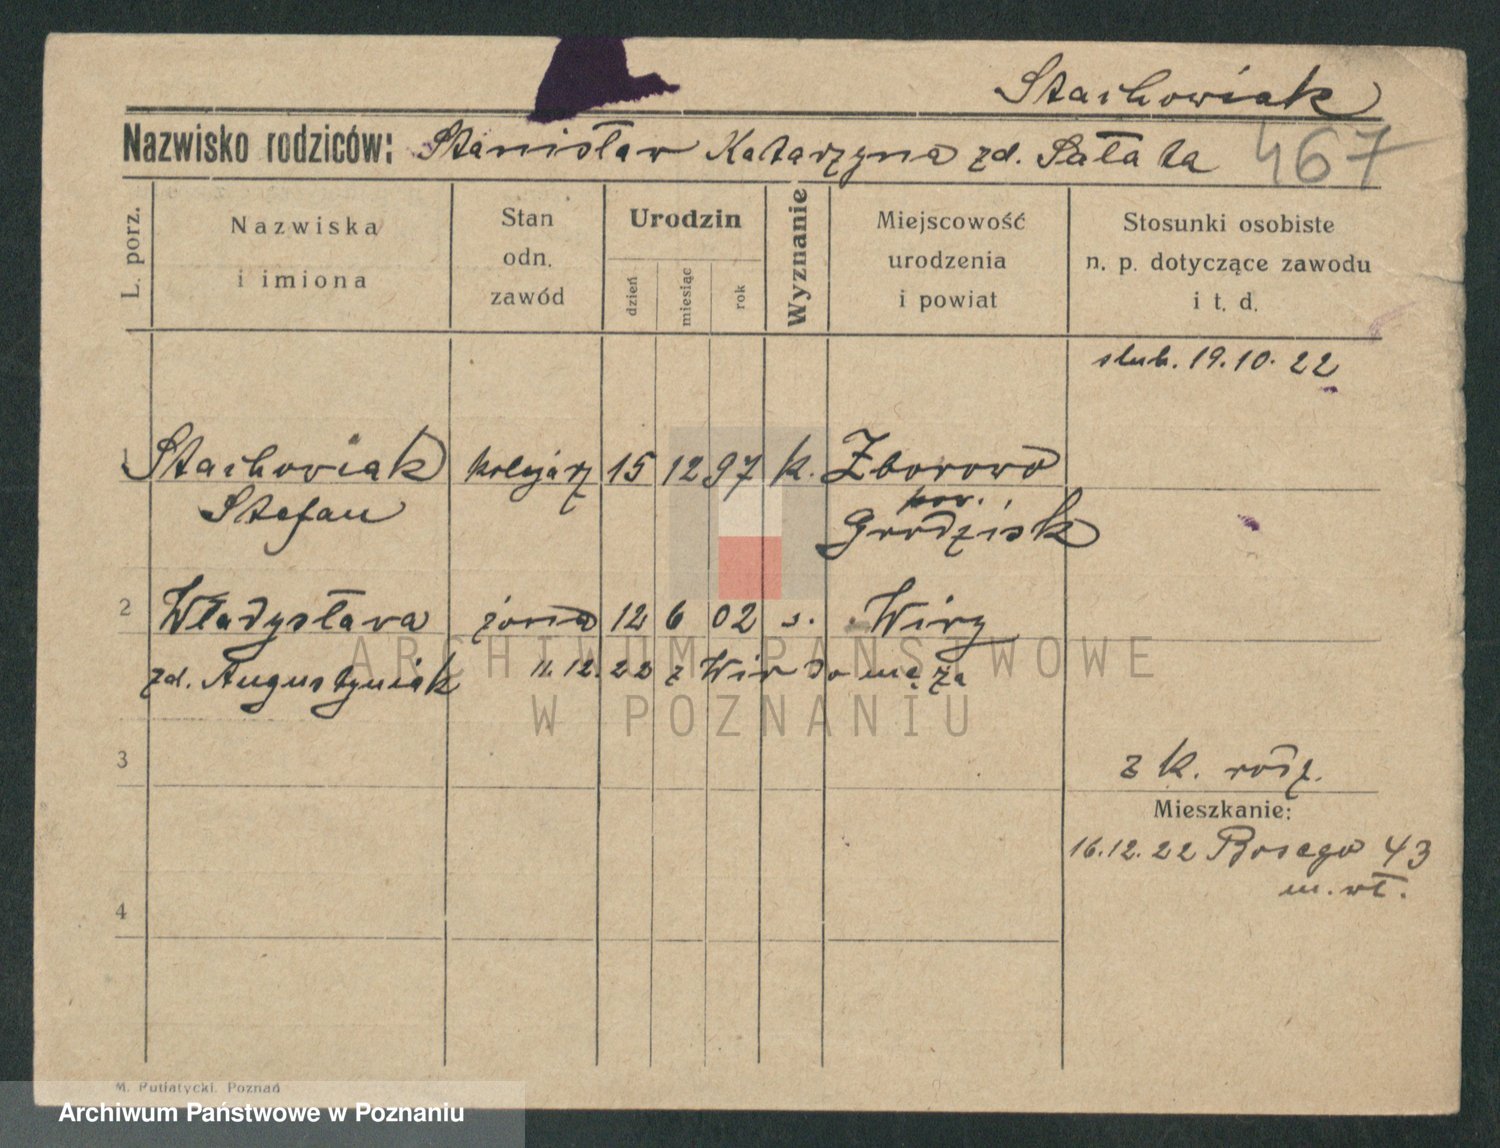 Stachowiak
Nazwisko rodziców: Stanisław Katarzyna zd. Sałata 467
L. porz.
Nazwiska
i imiona
Stan
odn.
zawód
Urodzin
dzień
miesiąc
rok
Wyznanie
Miejscowość
urodzenia
i powiat
Stosunki osobiste
n. p. dotyczące zawodu
i t. d.
slub. 19.10.22
1 Stachowiak kolejarz 15 12 97 k. Zborowo
Stefan pow. Grodzisk
2 Władysława żona 12 6 02 s. Wiry
zd. Augustyniak 11.12.22 z Wir do męża
ARCHIWUM PAŃSTWOWE
W POZNANIU
3
z k. rodz.
Mieszkanie:
16.12.22 Bosego 43
m. wł.
4
M. Putiatycki. Poznań
Archiwum Państwowe w Poznaniu